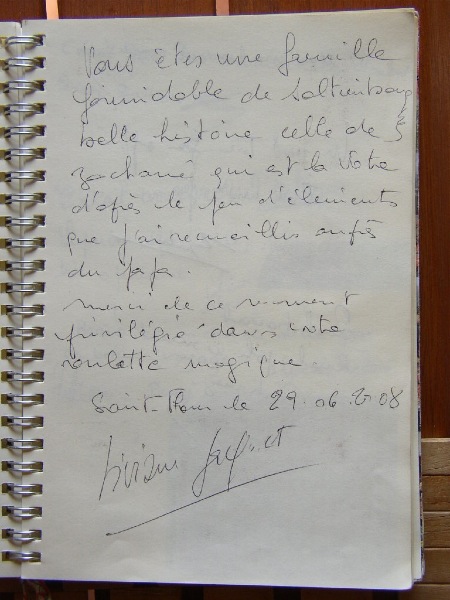 Vous êtes une famille
formidable de saltimbanques
belle histoire celle de
Zacharie qui est la vôtre
d'après le peu d'éléments
que j'ai recueillis auprès
du papa.
Merci de ce moment
privilégié dans votre
roulotte magique
Saint-Flour le 29.06.2008
Viviane